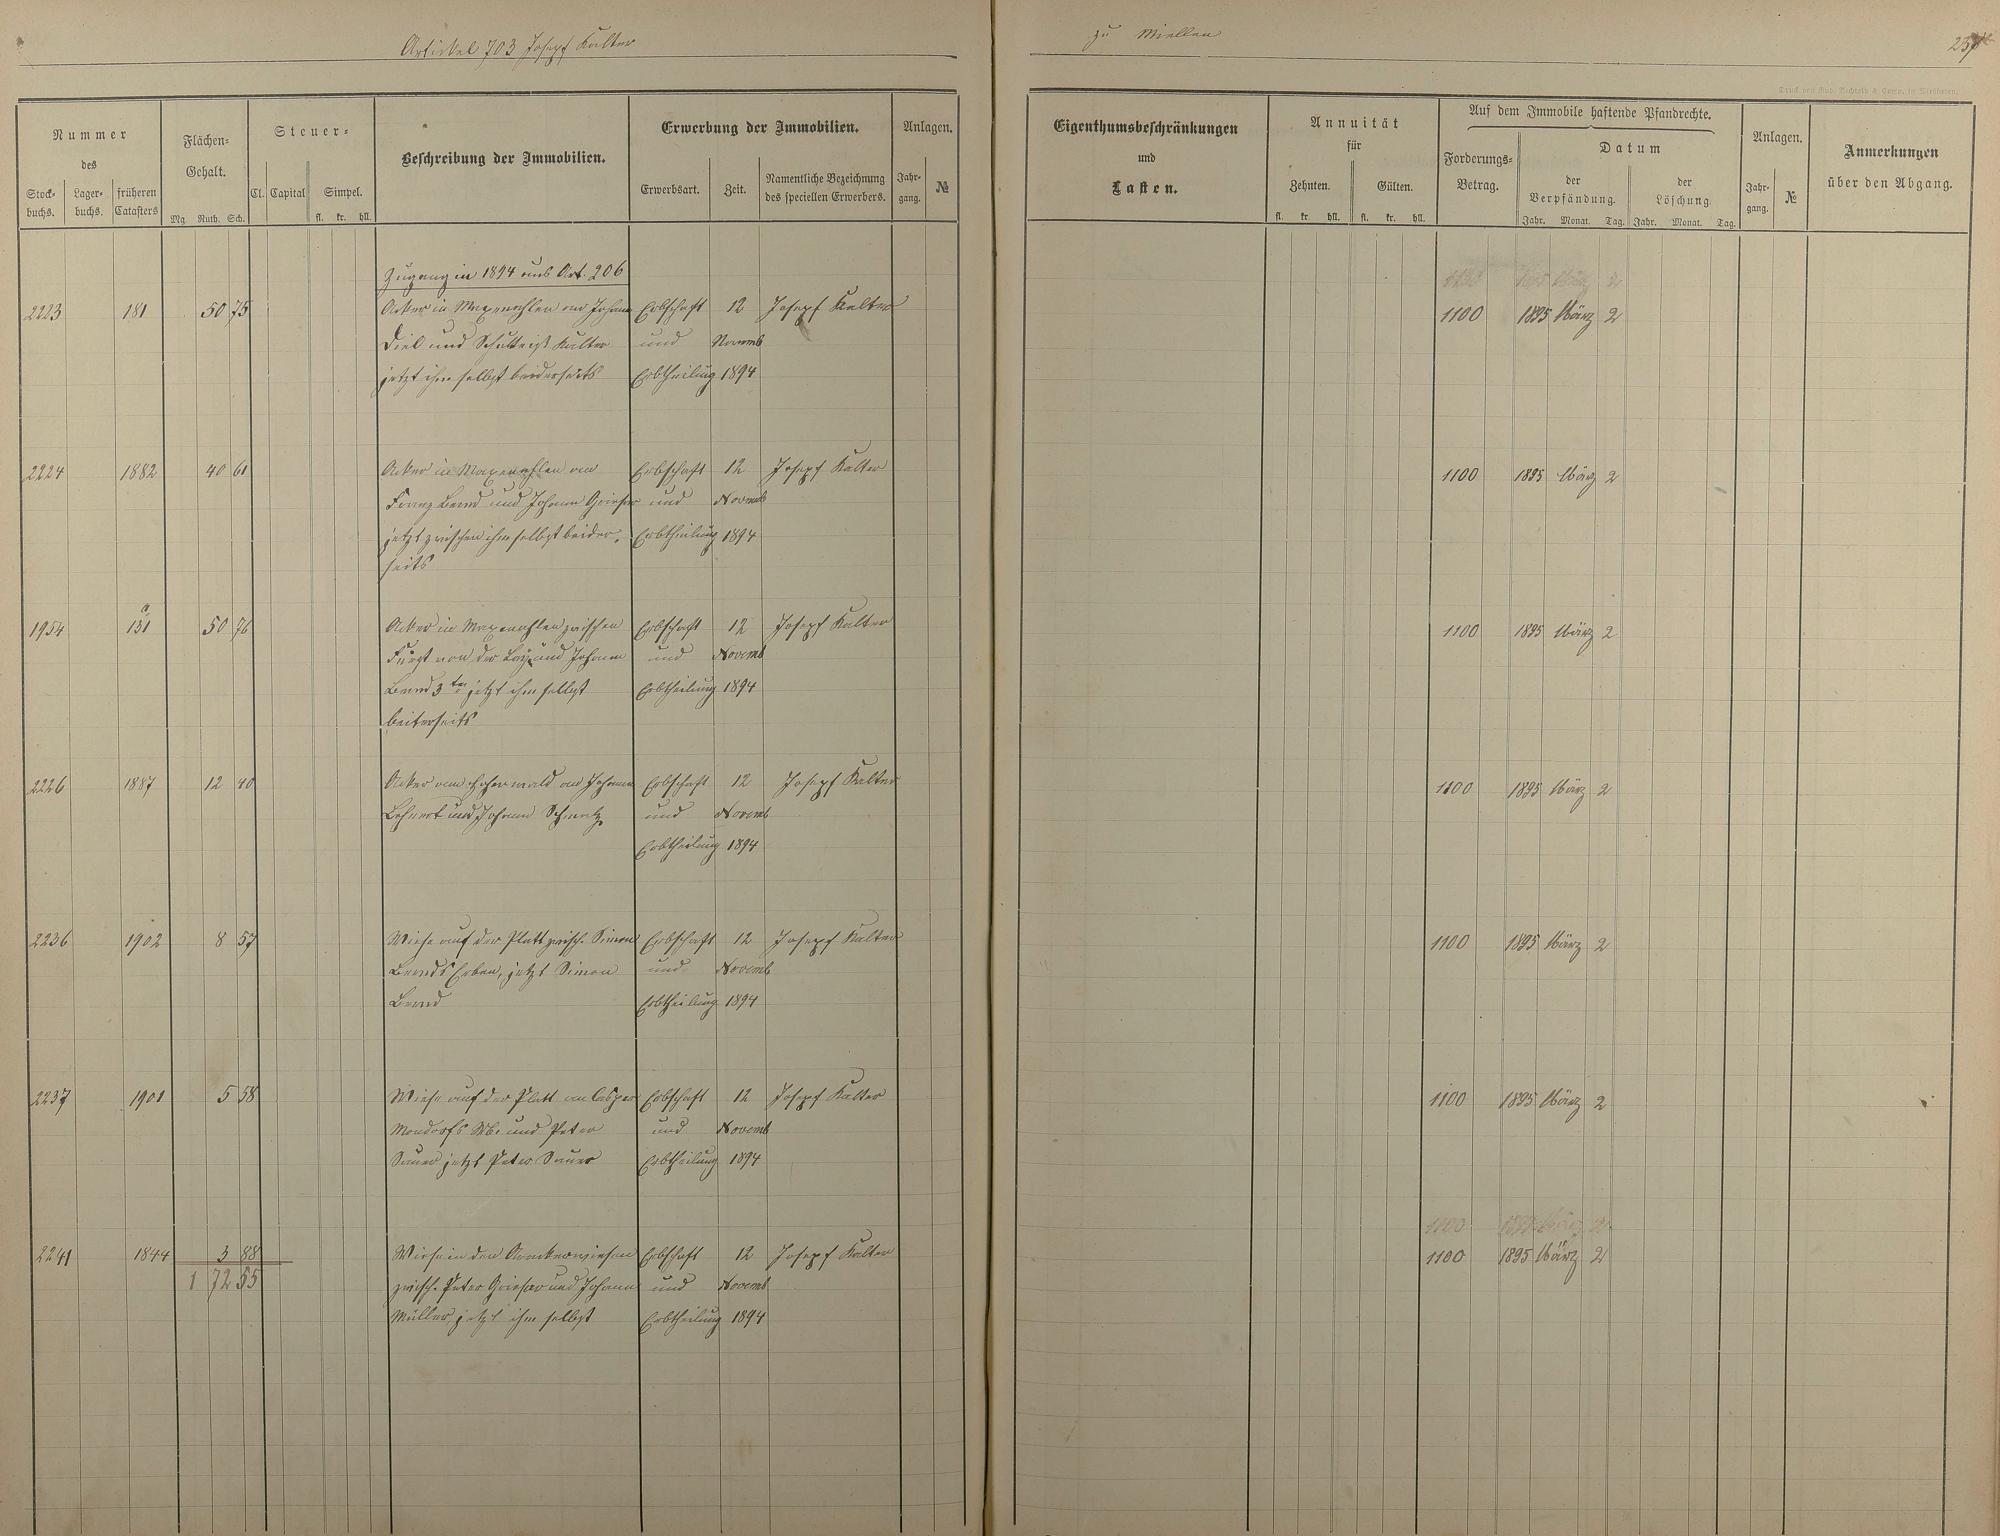 Artickel 703 Josepf Kalter
zu Miellen
237
Druck von Rud. Bechtold & Comp. in Wiesbaden.
Nummer
des
Stock-
buchs.
Lager-
buchs.
früheren
Catasters
Flächen-
Gehalt.
Mg. Ruth. Sch.
Steuer-
Cl. Capital Simpel.
fl. kr. hll.
Beschreibung der Immobilien.
Erwerbung der Immobilien.
Erwerbsart.
Zeit.
Namentliche Bezeichnung
des speciellen Erwerbers.
Anlagen.
Jahr-
gang.
№
Eigenthumsbeschränkungen
und
Lasten.
Annuität
für
Zehnten. Gülten.
fl. kr. hll. fl. kr. hll.
Auf dem Immobile haftende Pfandrechte.
Forderungs-
Betrag.
Datum
der
Verpfändung.
Jahr. Monat. Tag.
der
Löschung
Jahr. Monat. Tag.
Anlagen.
Jahr-
gang.
№
Anmerkungen
über den Abgang.
Zugang in 1894 aus Art. 206
2223 181 50 75 Acker in Maxenohlen an Johann Erbschaft 12 Josepf Kalter 1100 1895 März 2
Diel und Schultheiß Kalter und Novemb
jetzt ihm selbst beiderseits Erbtheilung 1894
2224 1882 40 61 Acker in Maxenohlen an Erbschaft 12 Josepf Kalter 1100 1895 März 2
Franz Bernd und Johann Grieser und Novemb
jetzt zwischen ihm selbst beider- Erbtheilung 1894
seits
1954 131 a 50 76 Acker in Maxenohlen zwischen Erbschaft 12 Josepf Kalter 1100 1895 März 2
Fürst von der Lay und Johann und Novemb
Bernd 3ten jetzt ihm selbst Erbtheilung 1894
beiterseits
2226 1887 12 40 Acker am Hoherwald an Johann Erbschaft 12 Josepf Kalter 1100 1895 März 2
Lehnert und Johann Schmelz und Novemb
Erbtheilung 1894
2236 1902 8 57 Wiese auf der Platt zwisch. Simon Erbschaft 12 Josepf Kalter 1100 1895 März 2
Bernds Erben, jetzt Simon und Novemb
Bernd Erbtheilung 1894
2237 1901 5 58 Wiese auf der Platt an Casper Erbschaft 12 Josepf Kalter 1100 1895 März 2
Mondorfs Wb. und Peter und Novemb
Sauer jetzt Peter Sauer Erbtheilung 1894
1100 1895 März 2
2241 1844 3 88 Wiese in den Erbschaft 12 Josepf Kalter 1100 1895 März 2
1 72 55 zwisch. Peter Grieser und Johann und Novemb
Müller jetzt ihm selbst Erbtheilung 1894